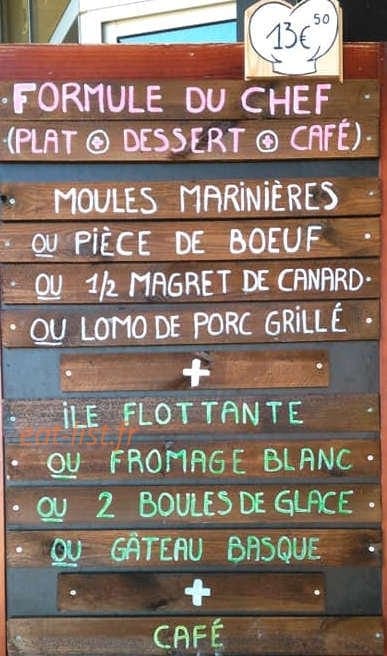 13€50
FORMULE DU CHEF
(PLAT + DESSERT + CAFÉ)
MOULES MARINIÈRES
OU PIÈCE DE BOEUF
OU 1/2 MAGRET DE CANARD
OU LOMO DE PORC GRILLÉ
+
ILE FLOTTANTE
OU FROMAGE BLANC
OU 2 BOULES DE GLACE
OU GÂTEAU BASQUE
+
CAFÉ